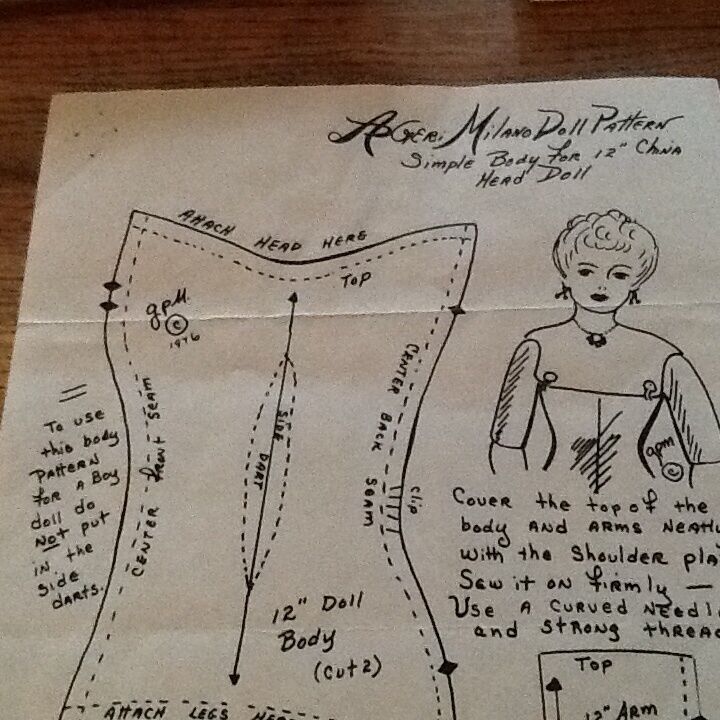 Ageri Milano Doll Pattern
Simple Body for 12" China
Head Doll
ATTACH HEAD HERE
TOP
gpM.
© 1976
CENTER FRONT SEAM
SIDE DART
CENTER BACK SEAM
clip
To use
this body
PATTERN
for A Boy
doll do
Not put
in the
side
darts.
12" Doll
Body
(cut 2)
ATTACH LEGS
gpm
©
Cover the top of the
body AND ARMS
with the shoulder
Sew it on firmly —
Use A curved
and strong
TOP
12" ARM